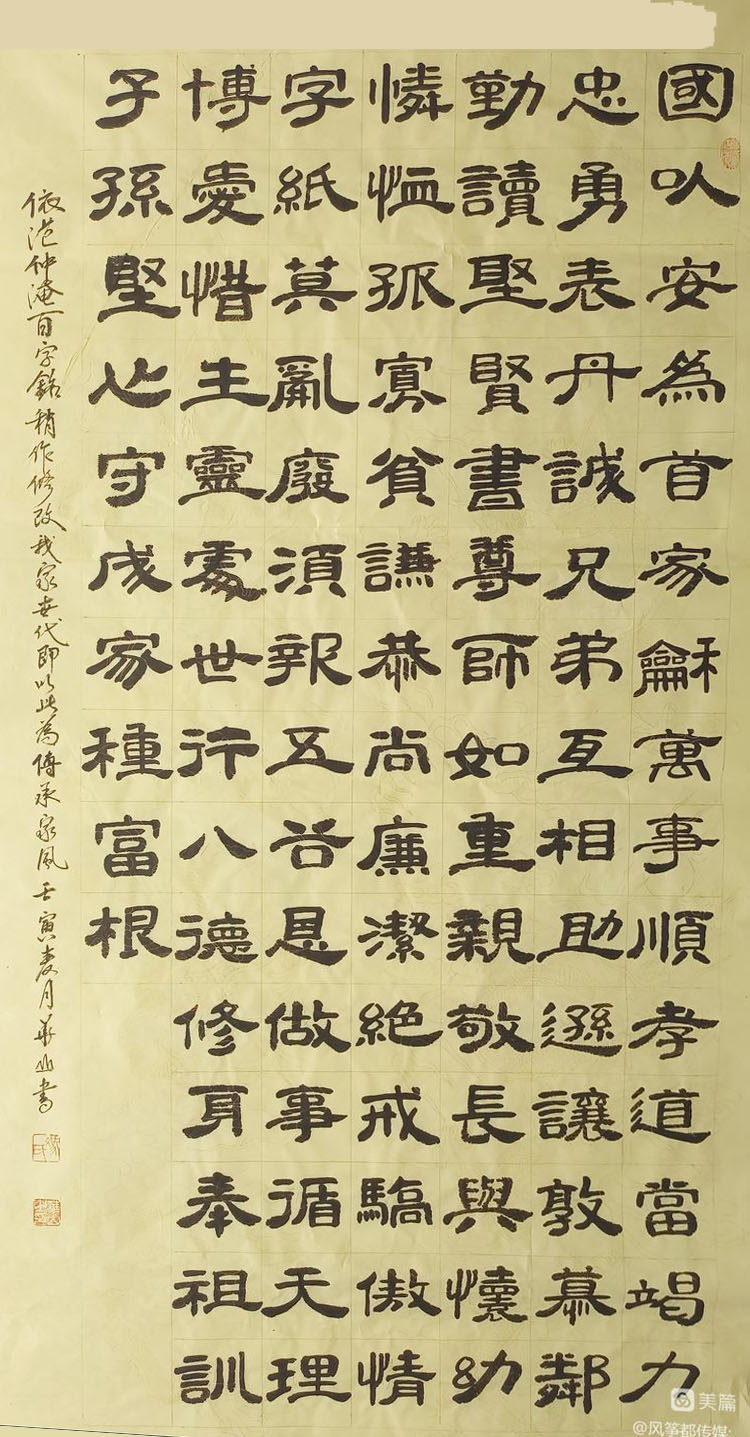 國以安為首家龢萬事順孝道當竭力
忠勇表丹誠兄弟互相助遜讓敦慕鄰
勤讀聖賢書尊師如重親敬長與懷幼
憐恤孤寡貧謙恭尚廉潔絕戒驕傲情
字紙莫亂廢須報五谷恩做事循天理
博愛惜生靈處世行八德修身奉祖訓
子孫堅心守成家種富根
依范仲淹百字銘稍作修改我家世代即以此為傳承家風壬寅麦月華山書
美篇
@风筝都传媒